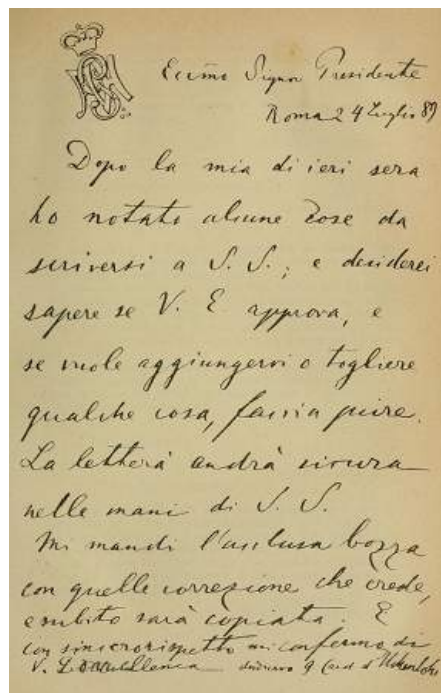 Ecc̃mo Signor Presidente
Roma 24 Luglio 89
Dopo la mia di ieri sera
ho notato alcune cose da
scriversi a S. S.; e desiderei
sapere se V. E. approva, e
se vuole aggiungervi o togliere
qualche cosa, faccia pure.
La lettera andrà sicura
nelle mani di S. S.
Mi mandi l'acclusa bozza
con quelle correzione che crede,
e subito sarà copiata. E
con sincero rispetto mi confermo di
V. Eccellenza G Card d' Hohenlohe